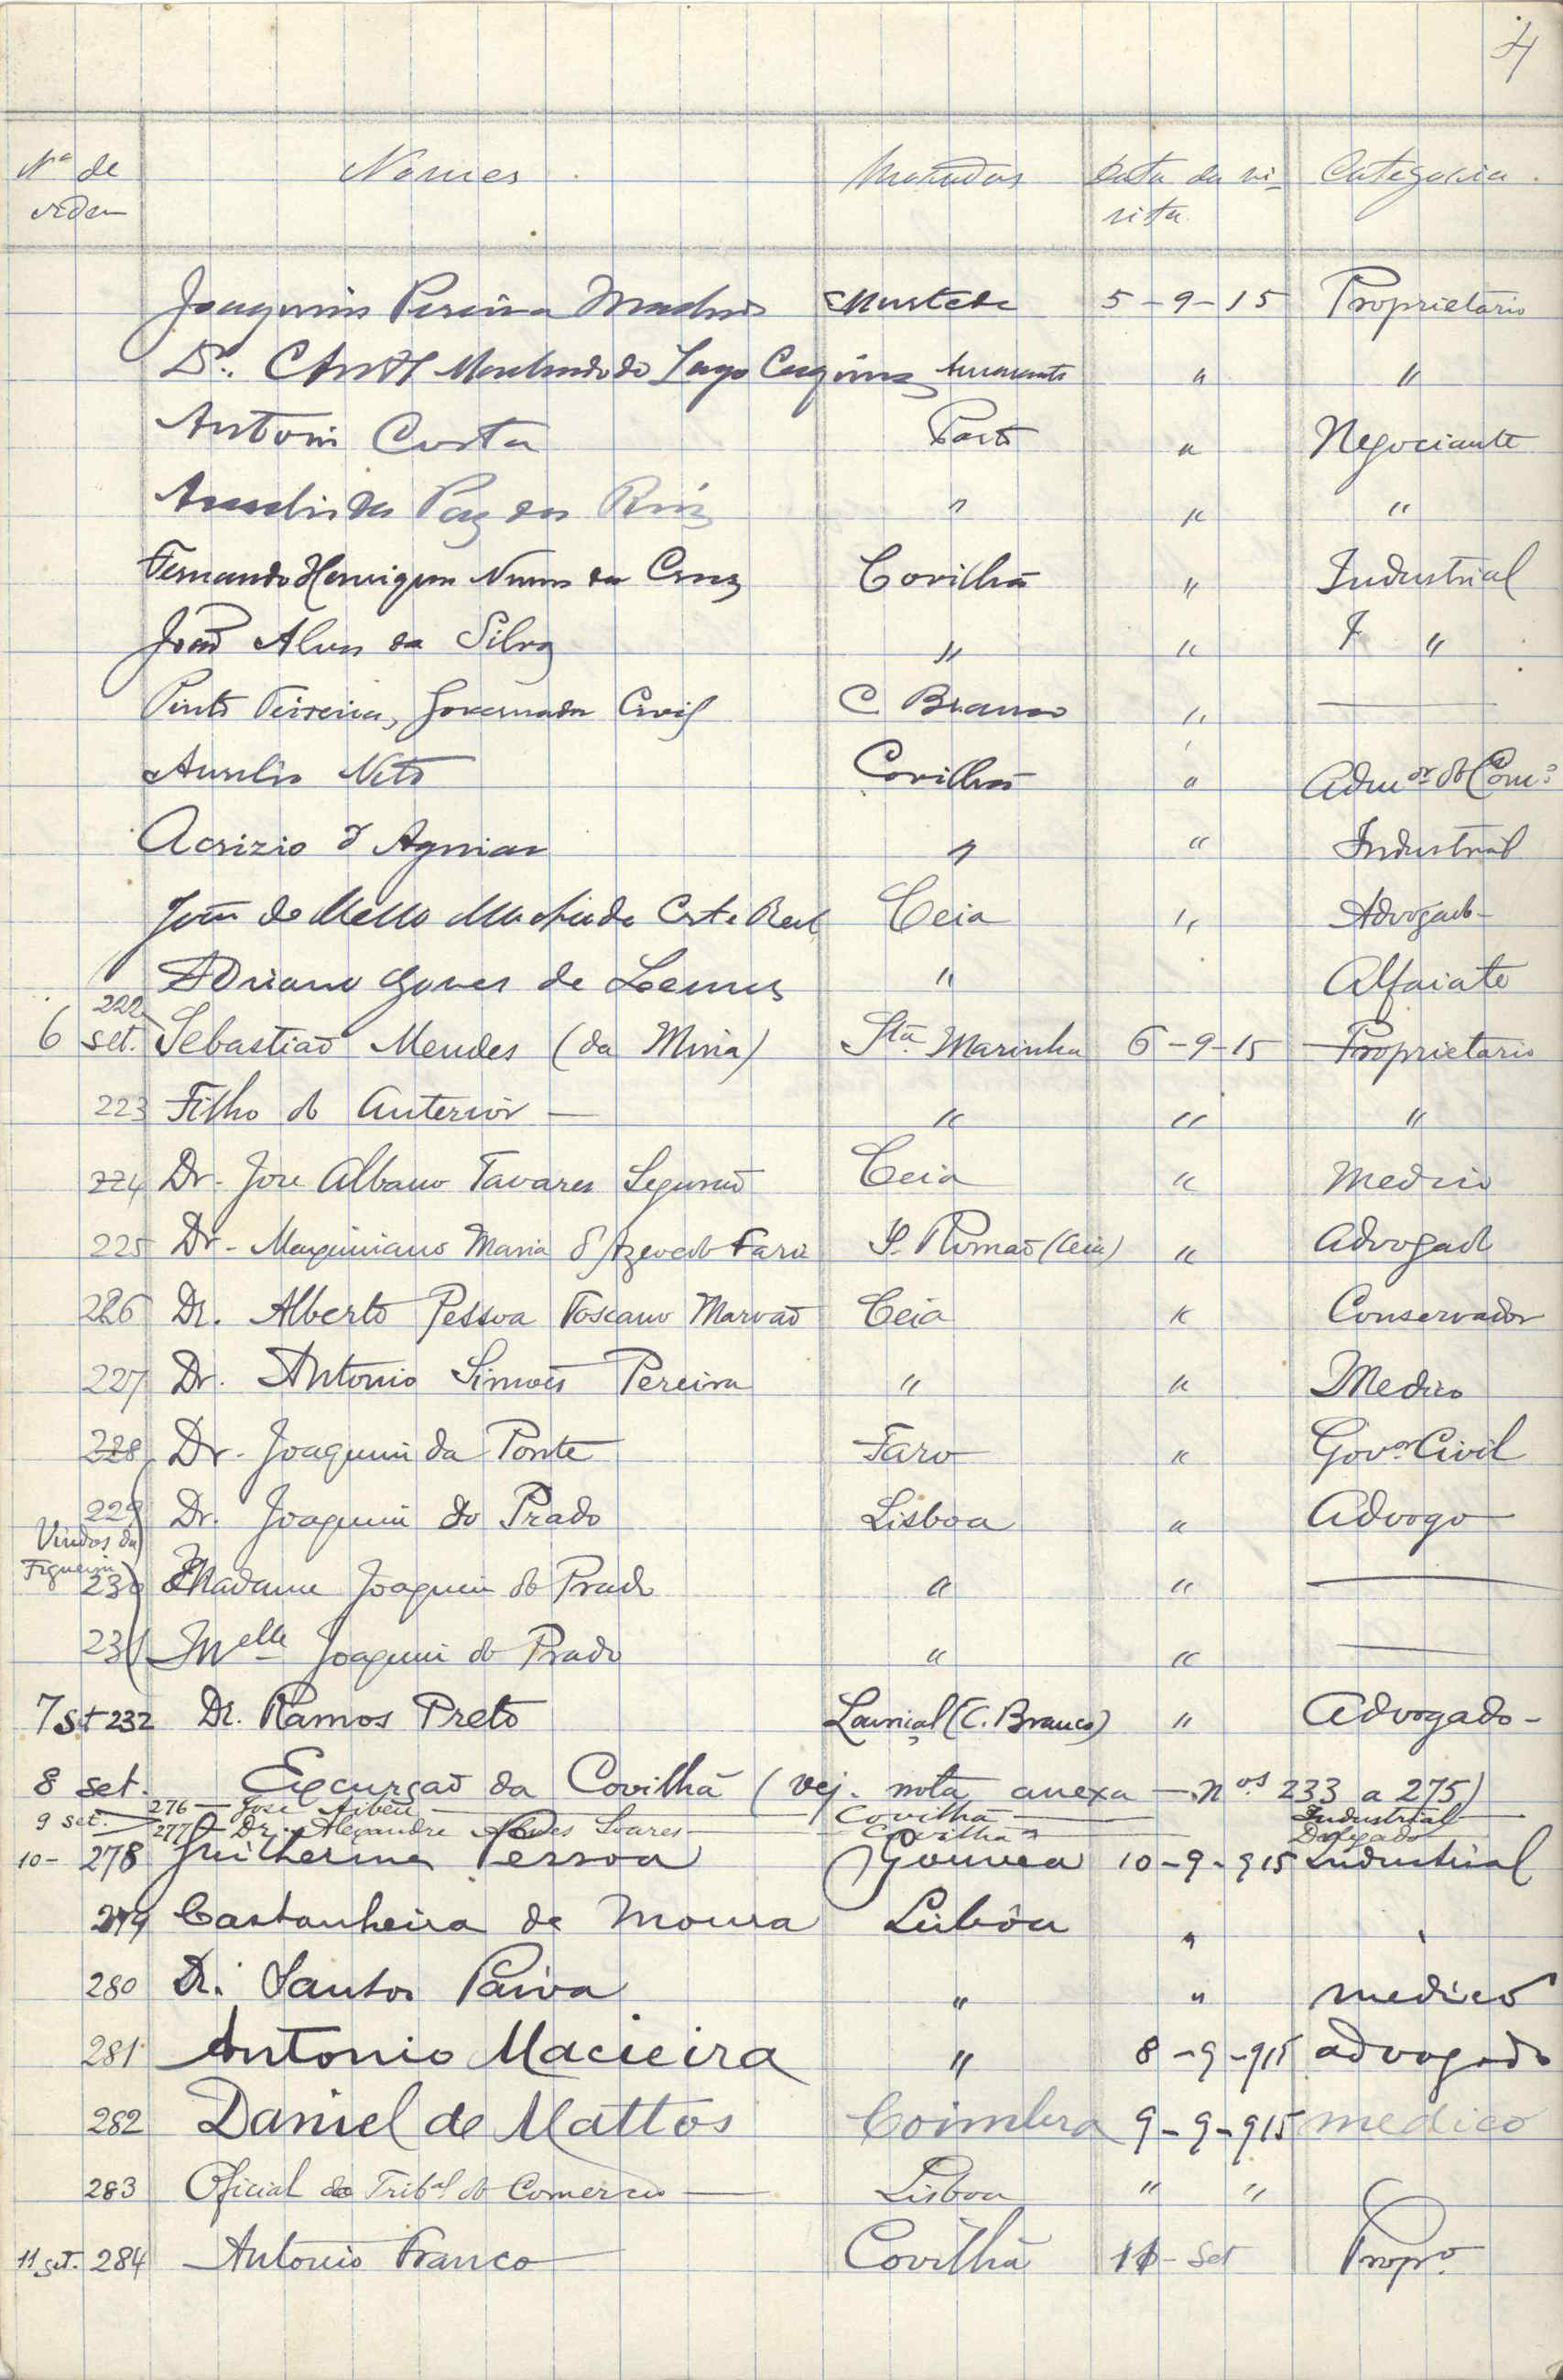 4
Nº de ordem Nomes Moradas Data da visita Categoria
Joaquim Pereira 5-9-15 Proprietario
Dr. Machado do Lago Amarante " "
Antonio Costa Porto " Negociante
da Paz dos " " "
Fernando Henriques Nunes da Cruz Covilhã " Industrial
João Alves da Silva " " "
Pinto Teixeira, Governador Civil C. Branco " —
Aurelio Neto Covilhã " Admor do Comº
Acrizio d'Aguiar " " Industrial
João de Mello Machado Corte Real Ceia " Advogado
Adriano Gomes de Lemos " Alfaiate
6 set. 222 Sebastião Mendes (da Mina) Sta Marinha 6-9-15 Proprietario
223 Filho do Anterior — " " "
224 Dr. Jose Albano Tavares Ceia " Medico
225 Dr. Maximiano Maria d'Azevedo Faria S. Romão (Ceia) " Advogado
226 Dr. Alberto Pessoa Toscano Marvão Ceia " Conservador
227 Dr. Antonio Simões Pereira " " Medico
228 Dr. Joaquim da Ponte Faro " Govor Civil
229 Dr. Joaquim do Prado Lisboa " Advogo
Vindos da Figueira
230 Madame Joaquim do Prado " " —
231 Melle Joaquim do Prado " " —
7 set 232 Dr. Ramos Preto Louriçal (C. Branco) " Advogado -
8 set. Excursão da Covilhã (vej. nota anexa — nos 233 a 275)
9 set. 276 — José Covilhã — Industrial
277 — Dr. Alexandre Alves Soares — Covilhã — Delegado
10- 278 Guilherme Pessoa Gouvea 10-9-915 Industrial
279 Castanheira de Moura Lisbôa " "
280 Dr. Santos Paiva " " medico
281 Antonio Macieira " 8-9-915 advogado
282 Daniel de Mattos Coimbra 9-9-915 medico
283 Oficial do Tribal do Comercio — Lisboa " "
11 set. 284 Antonio Franco Covilhã 11-Set Propro